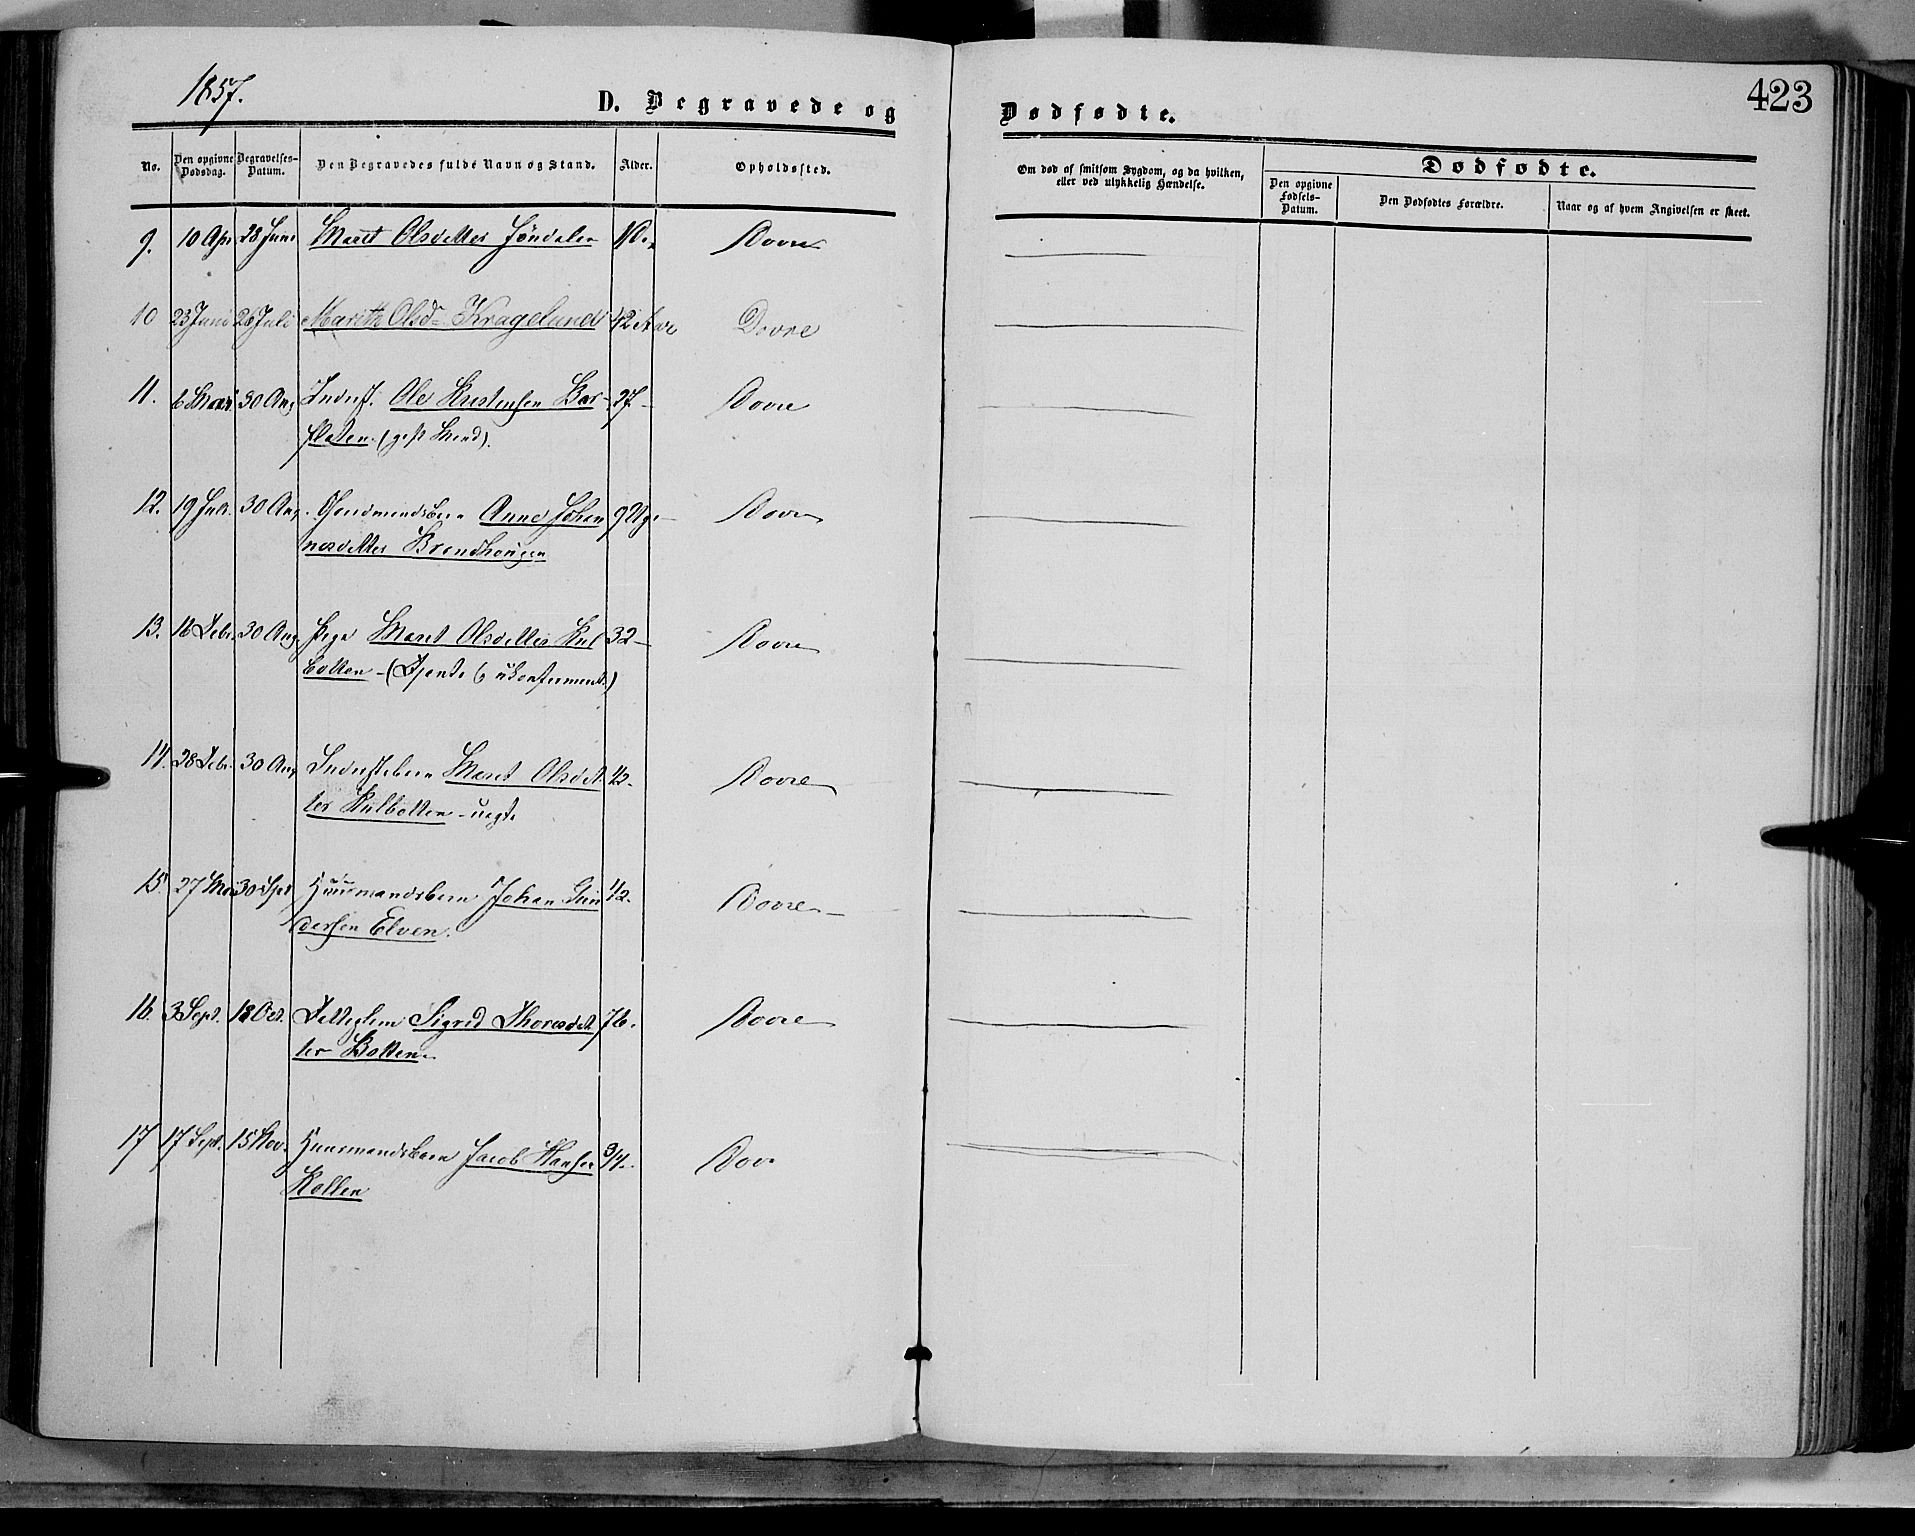 1857.
D. Begravede og
No.
Den opgivne Dødsdag.
Begravelses-Datum.
Den Begravedes fulde Navn og Stand.
Alder.
Opholdssted.
9. 10 Apr 28 Juni Marit Olsdatter Dovre
10 23 Juni 26 Juli Marith Olsd. Kragelund 42 Aar Dovre
11. 6 30 Aug Inderst. Ole Kristensen 27 Dovre
flaten. (gift Mand).
12. 19 30 Aug. Anne Johan 9 Uge Dovre
nesdatter Brendhougen
13. 16 Febr. 30 Aug. Pige Maret Olsdatter Kul 32 Dovre
botten - (
14. 28 Febr. 30 Aug Inderstebarn Maret Olsdat 1/2. Dovre
ter Kulbotten - uegte
15. 27 30 Spt Huusmandsbarn Johan Gun 1/2. Dovre
dersen Elven.
16. 3 Sept. 18 Oct. Sigrid Thoresdat 76. Dovre
ter Botten
17 17 Sept. 15 Nov. Huusmandsbarn Jacob Hansen 3/4 Dovre
Kollen
Dødfødte.
423
Om død af smitsom Sygdom, og da hvilken,
eller ved ulykkelig Hændelse.
Dødfødte.
Den opgivne
Fødsels-
Datum.
Den Dødfødtes Forældre.
Naar og af hvem Angivelsen er skeet.